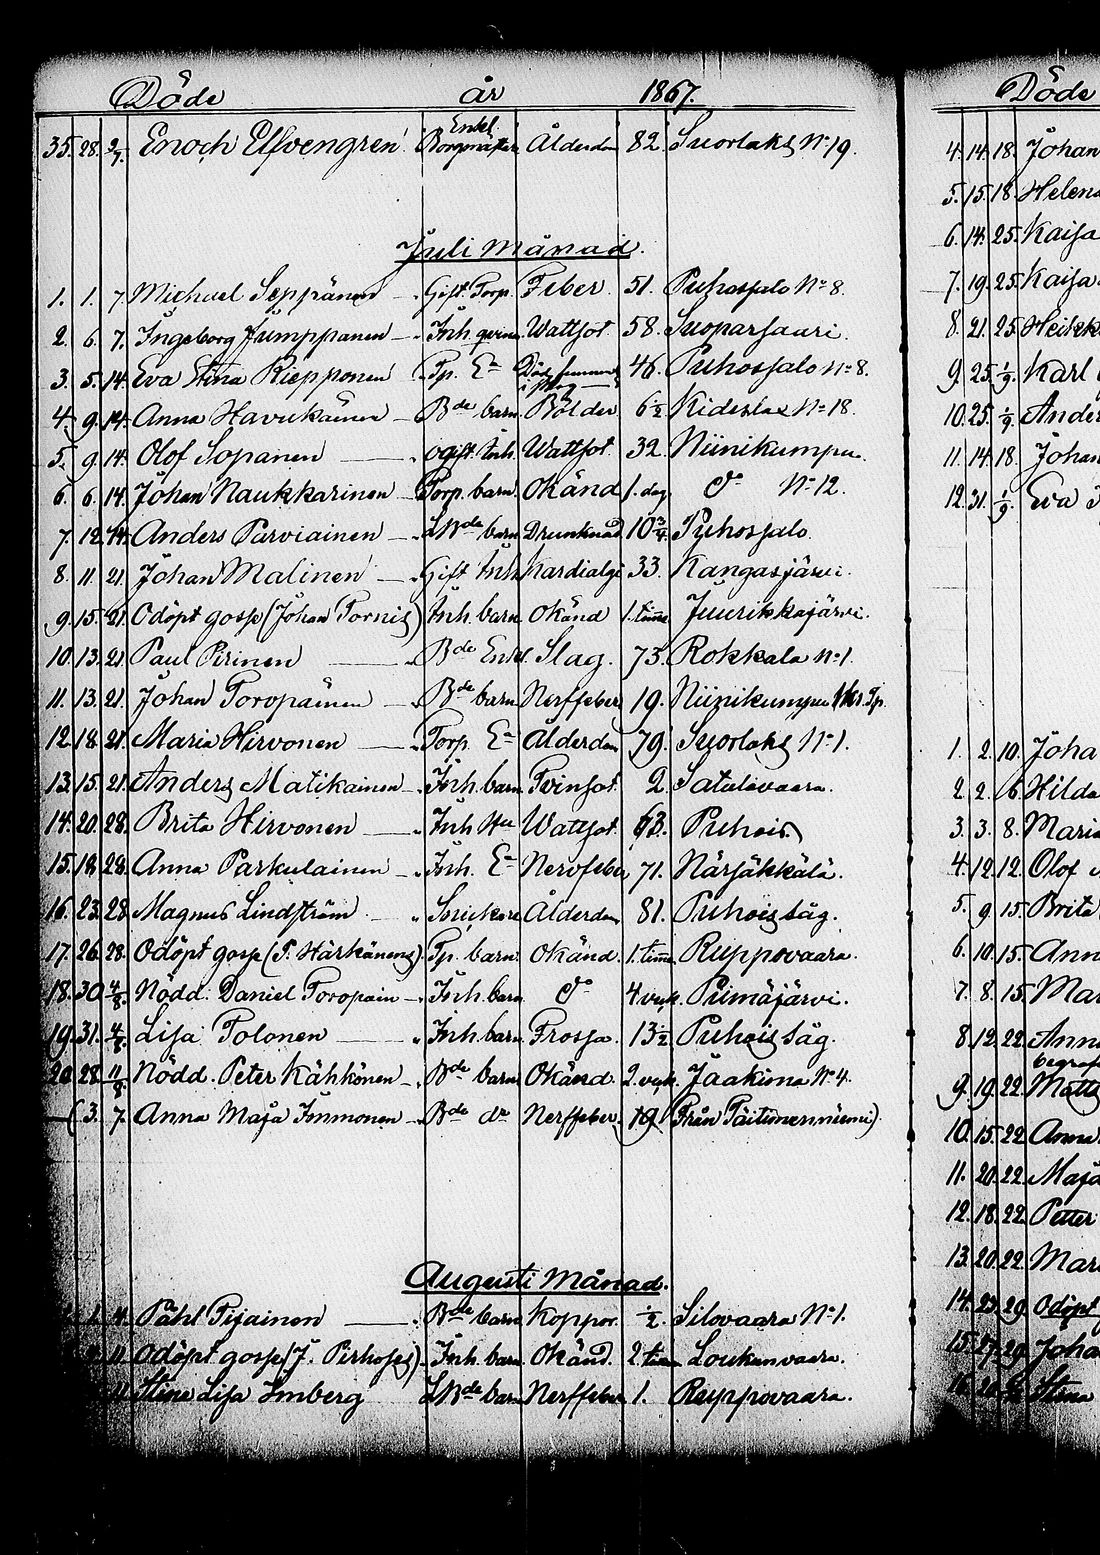 Döde år 1867.
35. 28. 2/7. Enoch Elfvengren Enkl. Borgmästare Ålderdom 82. Suorlaks N:o 19.
Juli Månad.
1. 1. 7. Michael Seppänen Gift. Torp. Feber 51. Puhossalo N:o 8.
2. 6. 7. Ingeborg Jumppanen Inh. qvinna Wattsot 58. Suoparsaari.
3. 5. 14. Eva Stina Riepponen Tp. E:a Död funnen i skog 46. Puhossalo N:o 8.
4. 9. 14. Anna Havukainen B:de barn Bölder 6 1/2 Kideslax N:o 18.
5. 9. 14. Olof Sopanen ogift Inh. Wattsot 32. Niinikumpu.
6. 6. 14. Johan Naukkarinen Torp. barn Okänd 1. dag d:o N:o 12.
7. 12. 14. Anders Parviainen LB:de barn Drunknad 10 3/4 Puhossalo.
8. 11. 21. Johan Malinen Gift Inh. Kardialgi 33. Kangasjärvi.
9. 15. 21. Odöpt gosse (Johan Tornis) Inh. barn Okänd 1. timme Juurikkajärvi.
10. 13. 21. Paul Pirinen B:de Enkl. Slag. 73. Rokkala N:o 1.
11. 13. 21. Johan Toropainen B:de barn Nerffeber 19. Niinikumpu
12. 18. 21. Maria Hirvonen Torp. E:a Ålderdom 79. Suorlaks N:o 1.
13. 15. 21. Anders Matikainen Inh. barn Tvinsot 2. Satulavaara.
14. 20. 28. Brita Hirvonen Inh. Hu Wattsot 63. Puhois
15. 18. 28. Anna Parkulainen Inh. E:a Nervfeber 71. Närsäkkälä.
16. 23. 28. Magnus Lindström Snickare Ålderdom 81. Puhois såg.
17. 26. 28. Odöpt gosse (P. Härkänens) Tp. barn Okänd 1. timme Ruppovaara.
18. 30. 4/8. Nödd. Daniel Toropain Inh. barn d:o 4 vek. Piimäjärvi.
19. 31. 4/8. Lisa Polonen Inh. barn Frossa 13 1/2 Puhois såg.
20. 28. 11/8. Nödd. Peter Kähkönen B:de barn Okänd 2. vek. Jaakima N:o 4.
( 3. 7. Anna Maja Immonen B:de d:r Nerffeber 19. Från
Augusti Månad.
1. 4. Påhl Pijainen B:de barn Koppor 1/2 Silovaara N:o 1.
11. Odöpt gosse (J. Pirhoses) Inh. barn Okänd 2 tim Loukunvaara.
11. Stina Lisa Imberg LB:de barn Nerffeber 1. Ruppovaara.
Döde
4. 14. 18. Johan
5. 15. 18. Helena
6. 14. 25. Kaisa
7. 19. 25. Kaisa
8. 21. 25. Heikk
9. 25. 1/9. Karl
10. 25. 1/9. Ander
11. 14. 18. Johan
12. 31. 1/9. Eva
1. 2. 10. Joha
2. 2. 6. Hilda
3. 3. 8. Maria
4. 12. 12. Olof
5. 9. 15. Brita
6. 10. 15. Ann
7. 8. 15. Mar
8. 12. 22. Ann
begraf
9. 19. 22. Matt
10. 15. 22. Anna
11. 20. 22. Maja
12. 18. 22. Petter
13. 20. 22. Mar
14. 23. 29. Odöpt
15. 27. 29. Joha
16. Stina